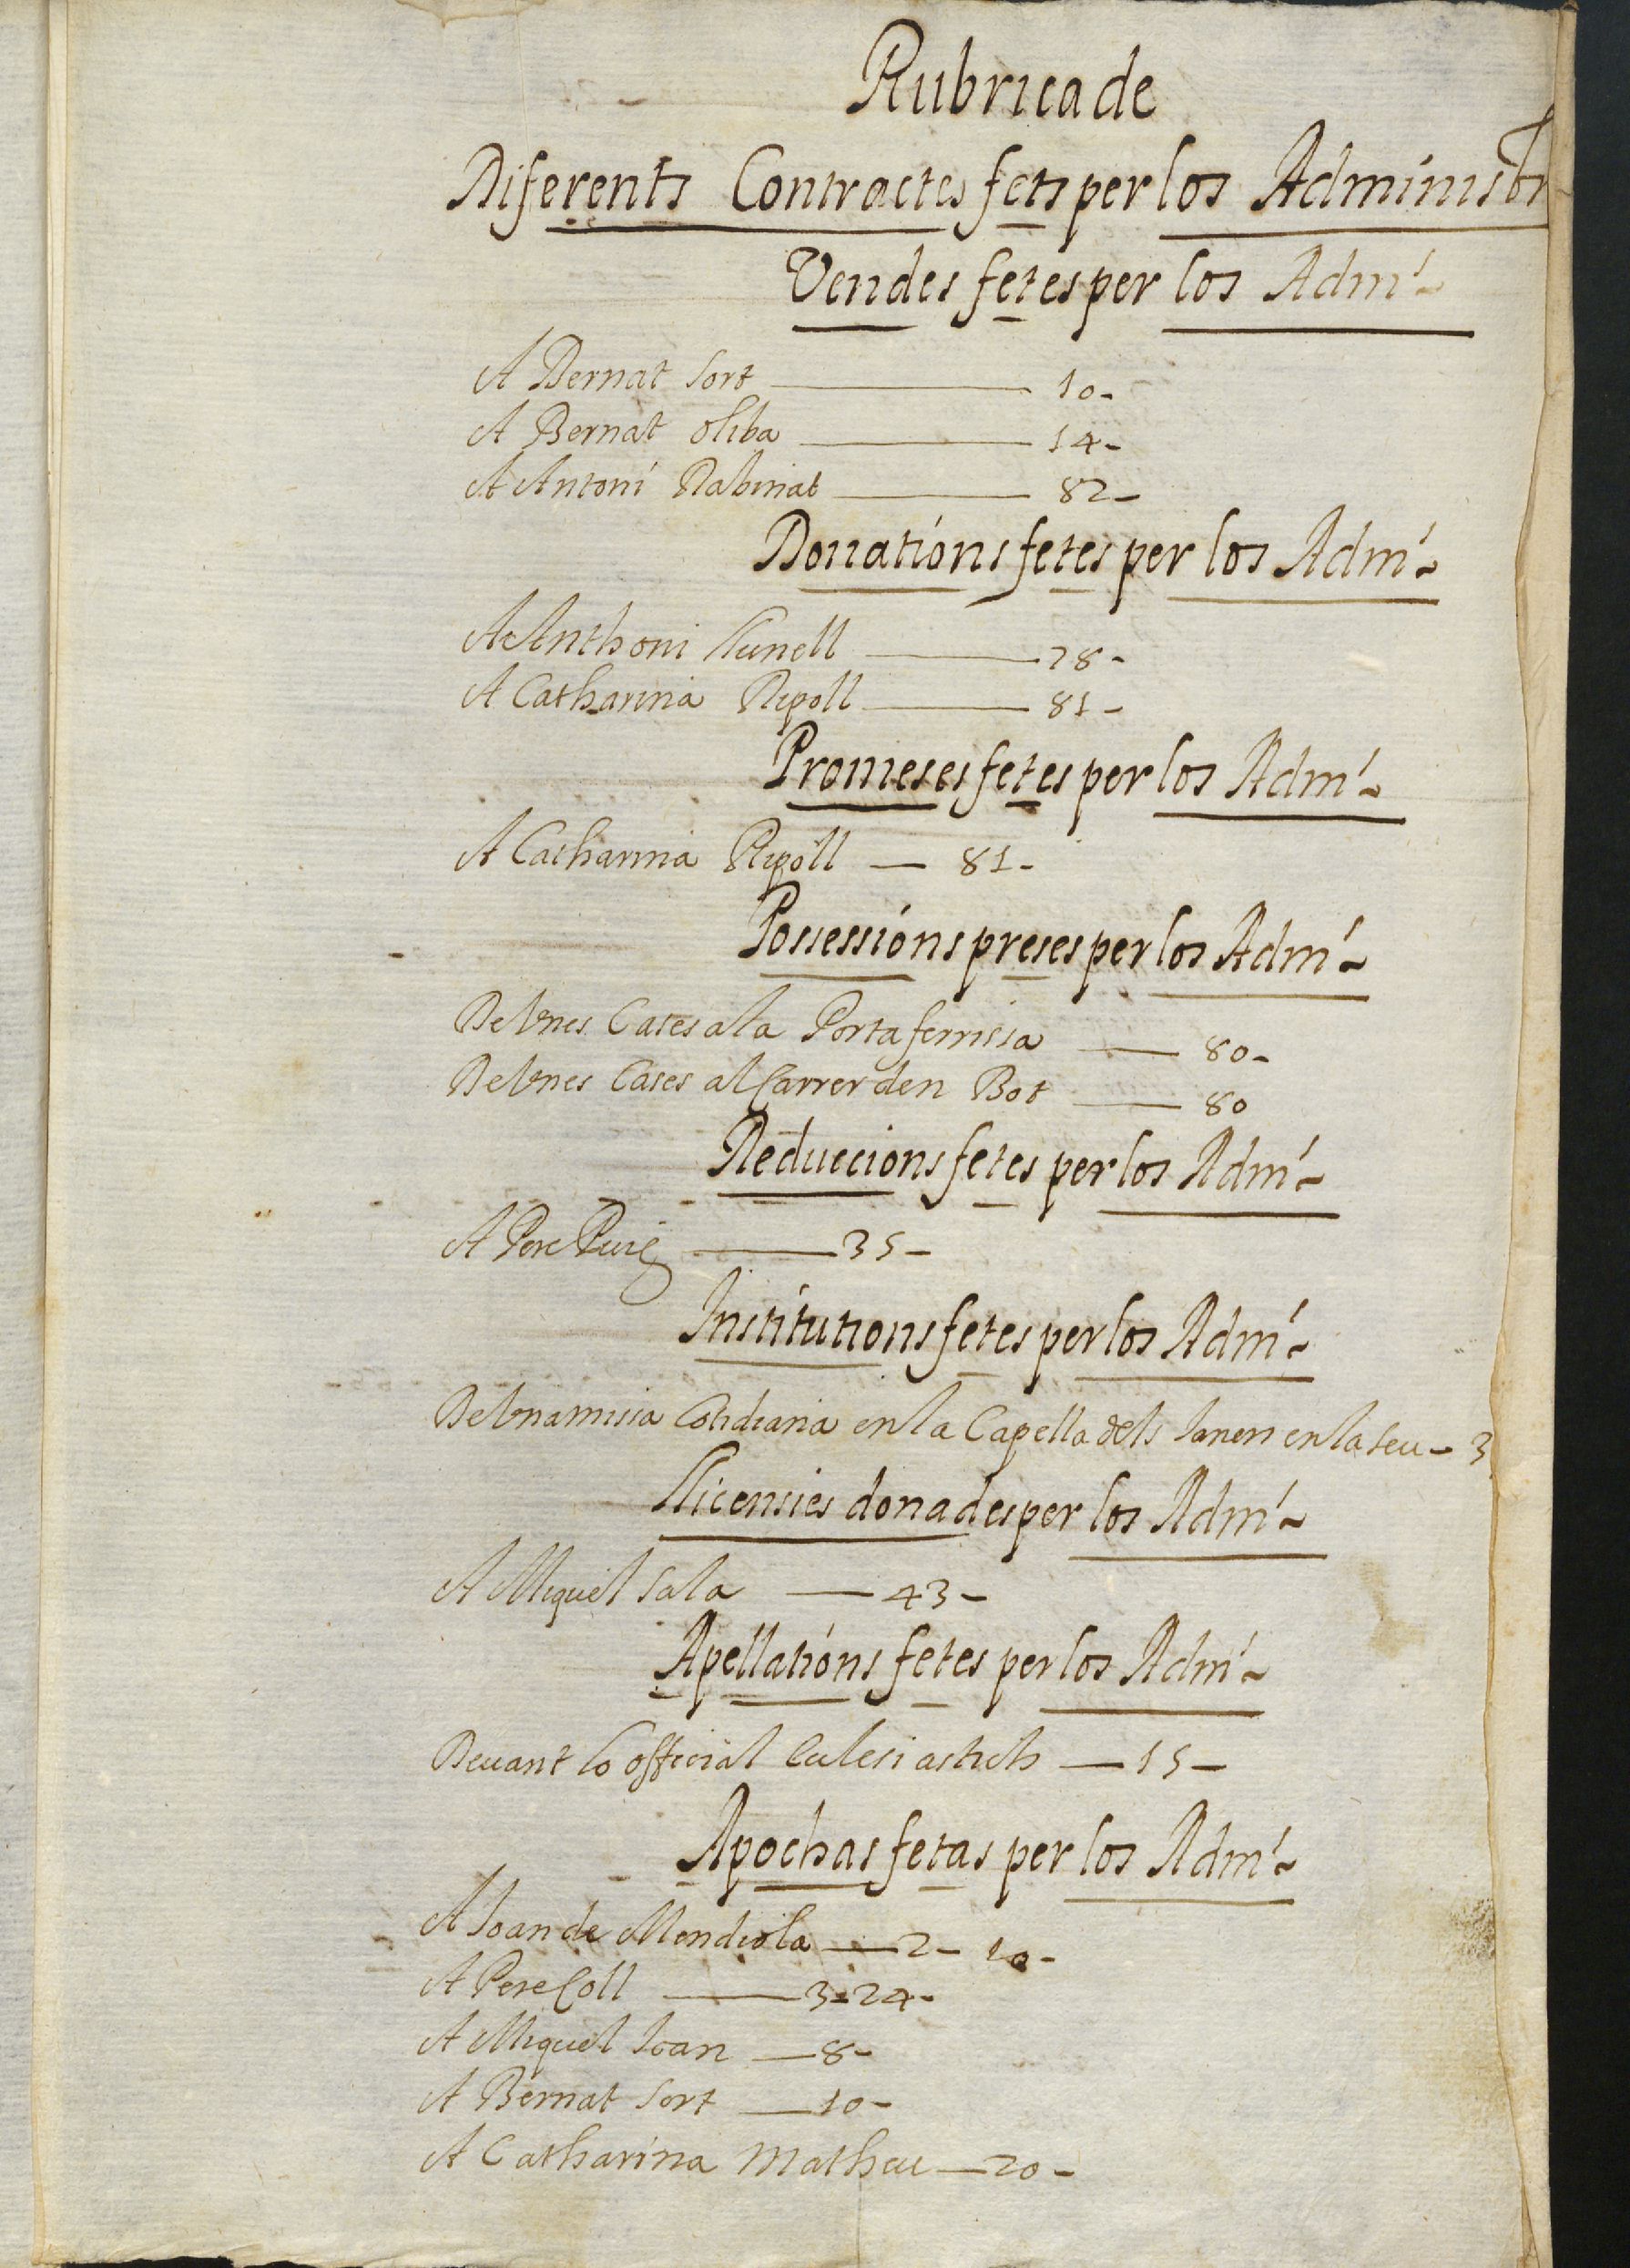 Rubrica de
Diferents Contractes fets per los Administr
Vendes fetes per los Adm.
A Bernat Sort 10-
A Bernat Oliba 14-
A Antoni Rabinat 82-
Donations fetes per los Adm.
A Anthoni Llunell 28-
A Catharina Ripoll 81-
Promeses fetes per los Adm.
A Catharina Ripoll 81-
Possessions preses per los Adm.
De Vnes Cases a la Portaferrissa 80-
De Vnes Cases al Carrer den Bot 80
Reduccions fetes per los Adm.
A Pere Puig 35-
Institutions fetes per los Adm.
De Vna missa Cotidiana en la Capella dels en la Seu - 3
Llicensies donades per los Adm.
A Miquel Sala 43-
Apellations fetes per los Adm.
Deuant lo official Eclesiastich 15-
Apochas fetas per los Adm.
A Joan de Mendiola 2- 10-
A Pere Coll 3-24-
A Miquel Joan 8-
A Bernat Sort 10-
A Catharina Matheu 20-